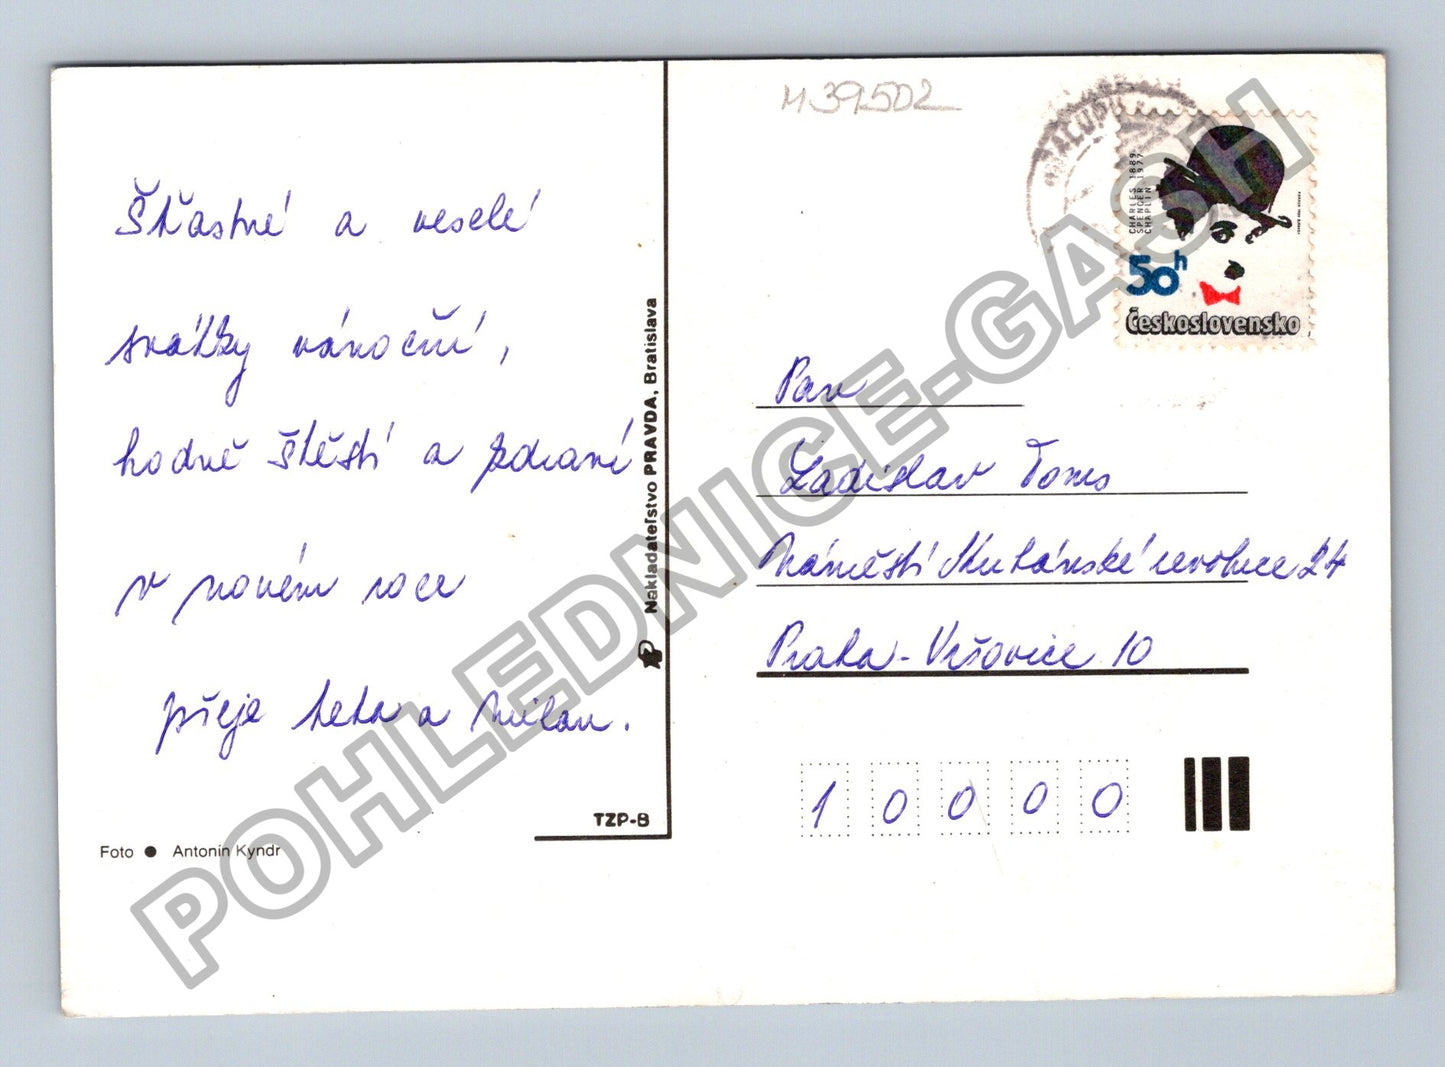 M39502
Šťastné a veselé
svátky vánoční,
hodně štěstí a zdraví
v novém roce
přeje teta a Milan.
Foto ● Antonín Kyndr
TZP-B
Nakladateľstvo PRAVDA, Bratislava
CHARLES 1889-
SPENCER 1977
CHAPLIN
50h
Československo
Pan
Ladislav Toms
Náměstí Kubánské revoluce 24
Praha - Vršovice 10
1 0 0 0 0
POHLEDNICE-GASH